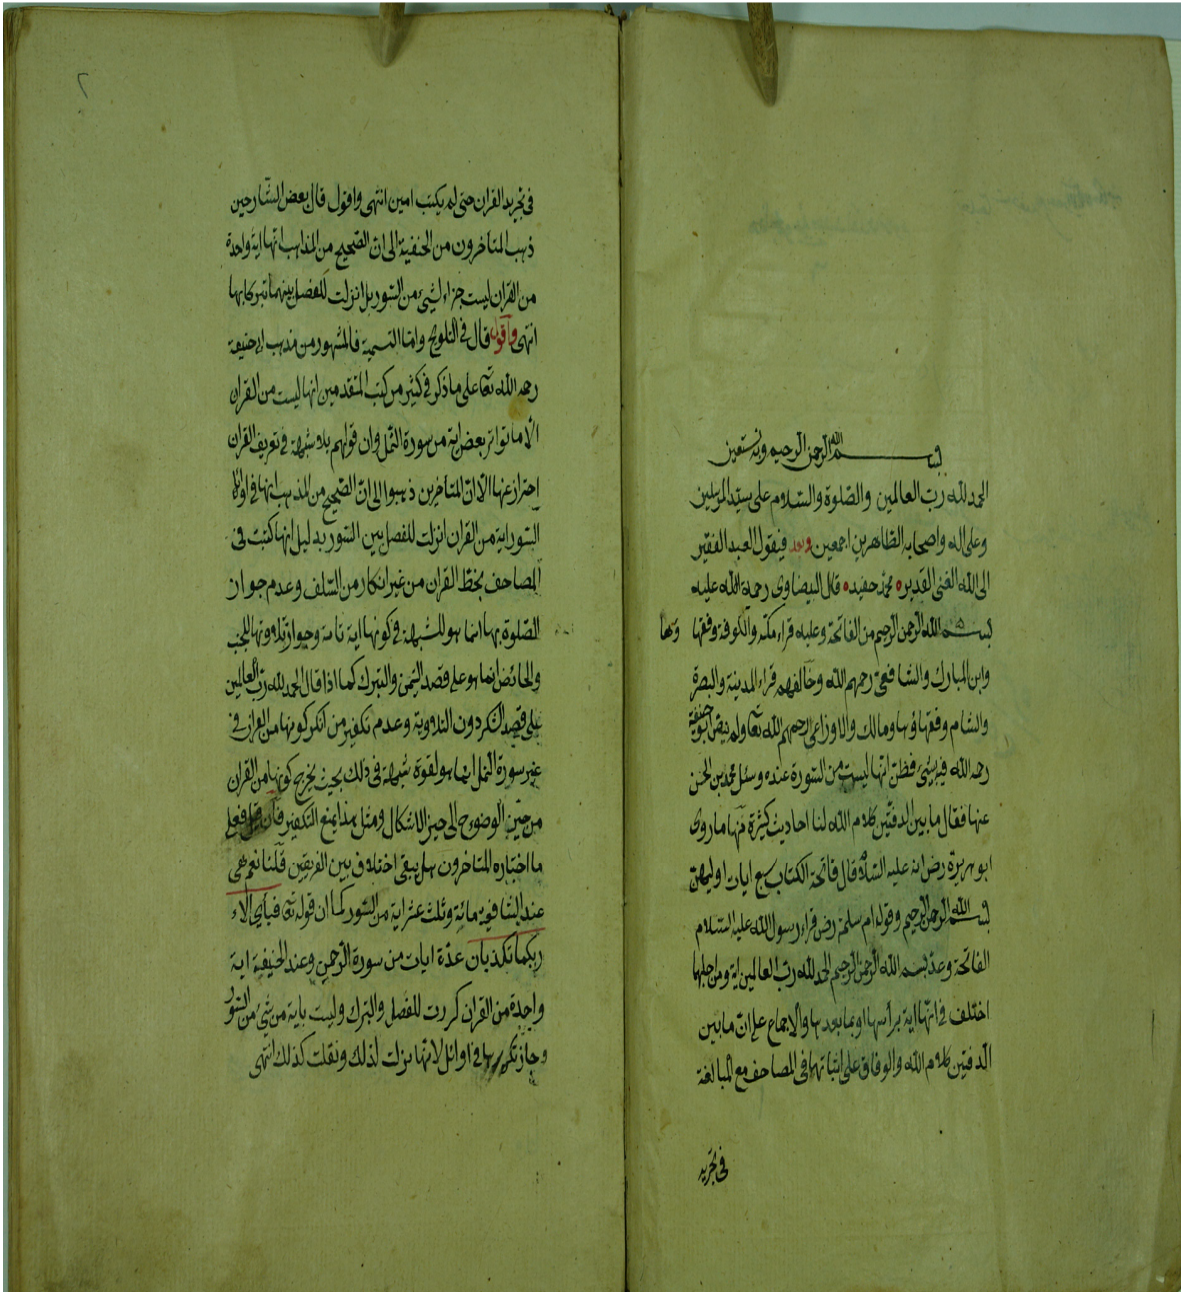 بسم الله الرحمن الرحيم وبه نستعين
الحمد لله رب العالمين والصلوة والسلام على سيد المرسلين
وعلى اله واصحابه الطاهرين اجمعين وبعد فيقول العبد الفقير
الى الله الغنى القدير محمد حفيده قال البيضاوى رحمة الله عليه
بسم الله الرحمن الرحيم من الفاتحة وعليه قراء مكة والكوفة وفقهاؤها
وابن المبارك والشافعى رحمهم الله وخالفهم قراء المدينة والبصرة
والشام وفقهاؤها ومالك والاوزاعى رحمهم الله تعا ولم ينص ابو حنيفة
رحمه الله فيه بشئ فظن انها ليست من السورة عنده وسئل محمد بن الحسن
عنها فقال ما بين الدفتين كلام الله لنا احاديث كثيرة منها ما روى
ابو هريرة رض انه عليه السلام قال فاتحة الكتاب سبع ايات اوليهن
بسم الله الرحمن الرحيم وقول ام سلمة رض قراء رسول الله عليه السلام
الفاتحة وعد بسم الله الرحمن الرحيم الحمد لله رب العالمين اية ومن اجلها
اختلف فى انها اية برأسها او بما بعدها والاجماع على ان ما بين
الدفتين كلام الله والوفاق على اثباتها فى المصاحف مع المبالغة
فى تجريد
فى تجريد القران حتى لم يكتب امين انتهى واقول قال بعض الشارحين
ذهب المتاخرون من الحنفية الى ان الصحيح من المذاهب انها اية واحدة
من القران ليست جزاء لشئ من السور بل انزلت للفصل بينهما تبركا بها
انتهى واقول قال فى التلويح واما التسمية فالمشهور من مذهب ابى حنيفة
رحمه الله تعا على ما ذكر فى كثير من كتب المتقدمين انها ليست من القران
الا ما تواتر بعض اية من سورة النمل وان قولهم بلا شبهة فى تعريف القران
احتراز عنها الا ان المتاخرين ذهبوا الى ان الصحيح من المذهب انها فى اوائل
السور اية من القران انزلت للفصل بين السور بدليل انها كتبت فى
المصاحف بخط القران من غير انكار من السلف وعدم جواز
الصلوة بها انما هو للشبهة فى كونها اية تامة وجواز تلاوتها للجنب
والحائض انما هو على قصد التيمن والتبرك كما اذا قال الحمد لله رب العالمين
على قصد الشكر دون التلاوية وعدم تكفير من انكر كونها من القران فى
غير سورة النمل انما هو لقوة شبهة فى ذلك بحيث يخرج كونها من القران
من حيز الوضوح الى حيز الاشكال ومثل هذا يمنع التكفير فان قيل فعلى
ما اختاره المتاخرون هل يبقى اختلاف بين الفريقين قلنا نعم هى
عند الشافعية مائة وثلث عشر اية من السور كما ان قوله تعا فباى الاء
ربكما تكذبان عدة ايات من سورة الرحمن وعند الحنيفية اية
واحدة من القران كررت للفصل والتبرك وليست باية من شئ من السور
وجاز تكريرها فى اوائل لانها نزلت لذلك ونقلت كذلك انتهى